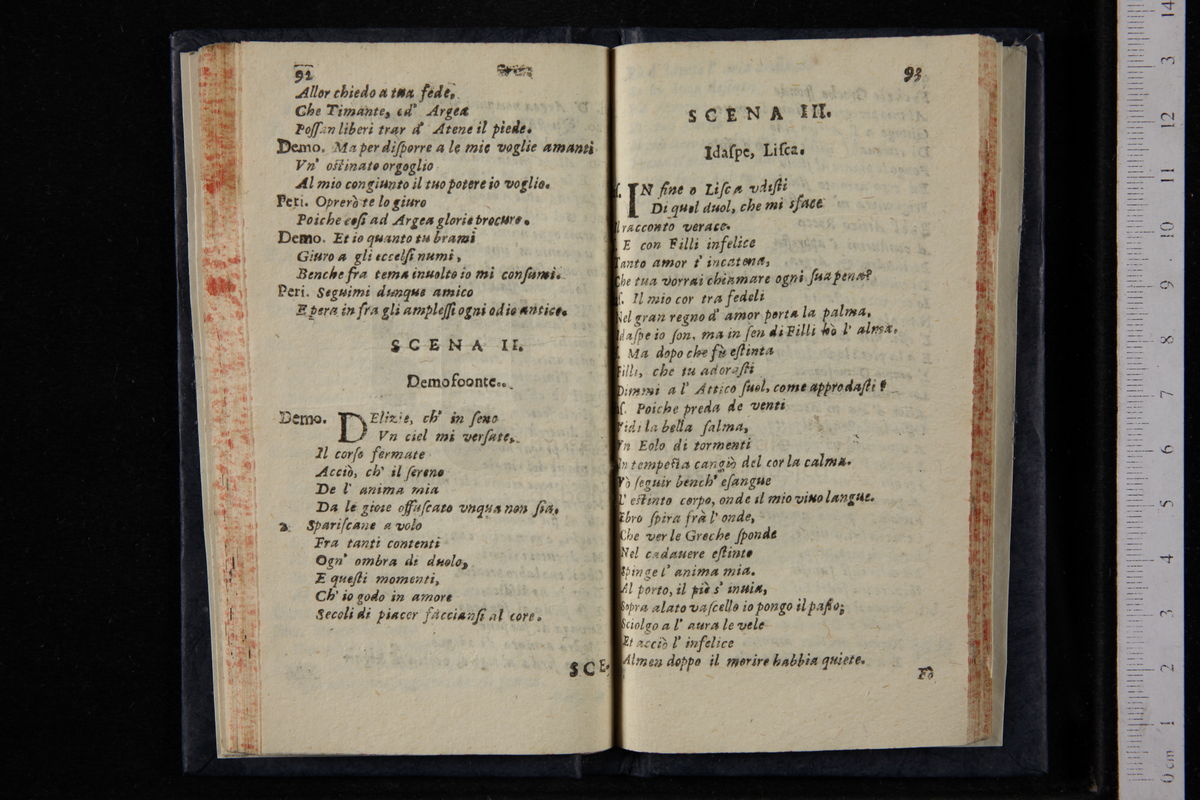 92
Allor chiedo a tua fede,
Che Timante, ed' Argea
Possan liberi trar d' Atene il piede.
Demo. Ma per disporre a le mie voglie amanti
Vn' ostinato orgoglio
Al mio congiunto il tuo potere io voglio.
Peri. Opererò te lo giuro
Poiche così ad Argea glorie procuro.
Demo. Et io quanto tu brami
Giuro a gli eccelsi numi,
Benche fra tema inuolto io mi consumi.
Peri. Seguimi dunque amico
E pera in fra gli amplessi ogni odio antico.
SCENA II.
Demofoonte.
Demo. DElizie, ch' in seno
Vn ciel mi versate,
Il corso fermate
Acciò, ch' il sereno
De l' anima mia
Da le gioie offuscato vnqua non sia.
2 Spariscane a volo
Fra tanti contenti
Ogn' ombra di duolo,
E questi momenti,
Ch' io godo in amore
Secoli di piacer facciansi al core.
SCE-
93
SCENA III.
Idaspe, Lisca.
IN fine o Lisca vdisti
Di quel duol, che mi sface
Il racconto verace.
E con Filli infelice
Tanto amor t' incatena,
Che tua vorrai chiamare ogni sua pena?
Il mio cor tra fedeli
Nel gran regno d' amor porta la palma,
Idaspe io son, ma in sen di Filli hò l' alma.
Ma dopo che fù estinta
Filli, che tu adorasti
Dimmi a l' Attico suol, come approdasti?
Poiche preda de venti
Vidi la bella salma,
Vn Eolo di tormenti
In tempesta cangiò del cor la calma.
Vò seguir bench' esangue
L' estinto corpo, onde il mio viuo langue.
Ebro spira frà l' onde,
Che ver le Greche sponde
Nel cadauere estinto
Spinge l' anima mia.
Al porto, il piè s' inuia,
Sopra alato vascello io pongo il passo;
Sciolgo a l' aura le vele
Et acciò l' infelice
Almen doppo il morire habbia quiete.
Fò